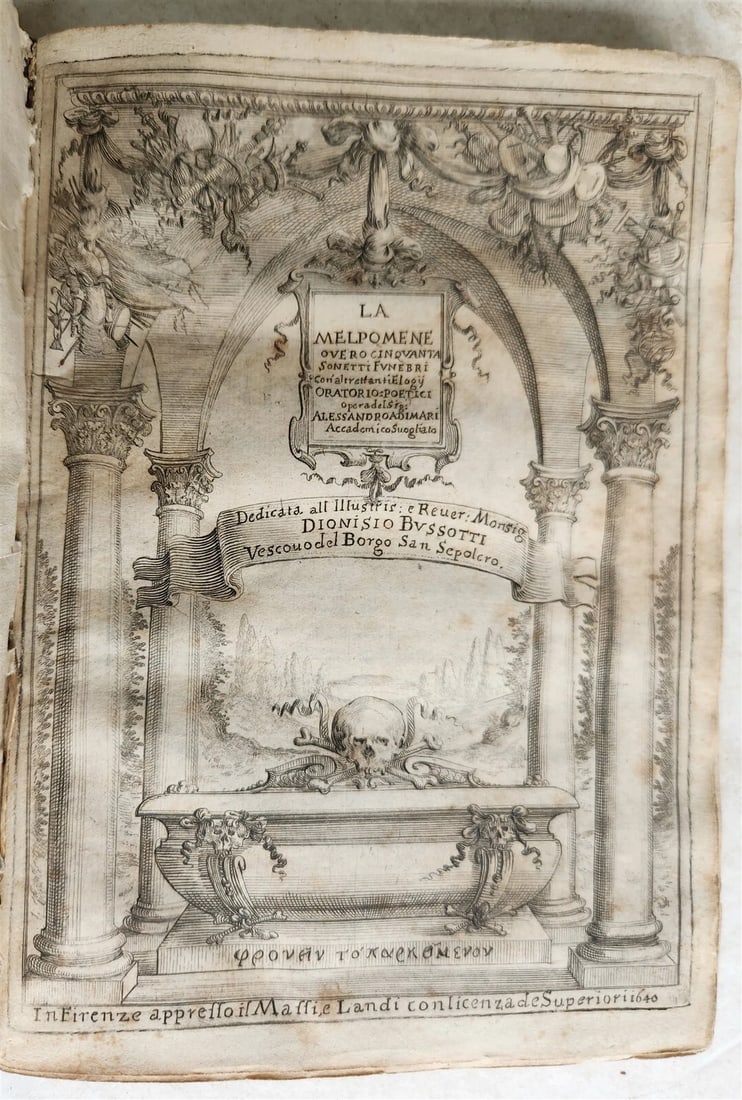 LA
MELPOMENE
OVERO CINQVANTA
SONETTI FVNEBRI
Con altrettanti Elogÿ
ORATORIO=POETICI
Opera del Sig:
ALESSANDRO ADIMARI
Accademico Suogliato
Dedicata all Illustris: e Reuer: Monsig
DIONISIO BVSSOTTI
Vescouo del Borgo San Sepolcro.
In Firenze appresso il Massi, e Landi con licenza de Superiori 1640